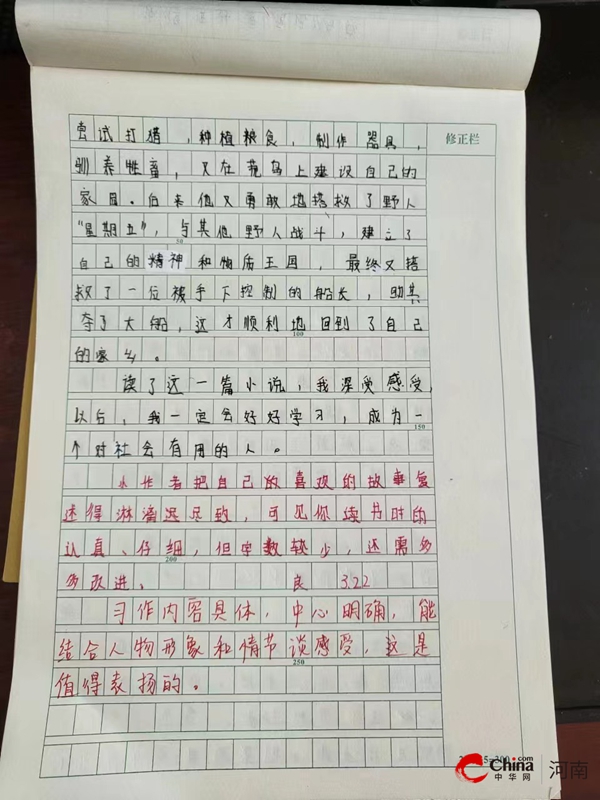 尝试打猎，种植粮食，制作器具，
修正栏
驯养牲畜，又在荒岛上建设自己的
家园。后来他又勇敢地搭救了野人
“星期五”，与其他野人战斗，建立了
50
自己的精神和物质王国，最终又搭
救了一位被手下控制的船长，助其
夺了大船，这才顺利地回到了自己
100
的家乡。
读了这一篇小说，我深受感受，
以后，我一定会好好学习，成为一
150
个对社会有用的人。
小作者把自己的喜欢的故事复
述得淋漓尽致，可见你读书时的
认真、仔细，但字数较少，还需多
200
多改进。 良 3.22
习作内容具体，中心明确，能
结合人物形象和情节谈感受，这是
250
值得表扬的。
China.com
中华网
河南